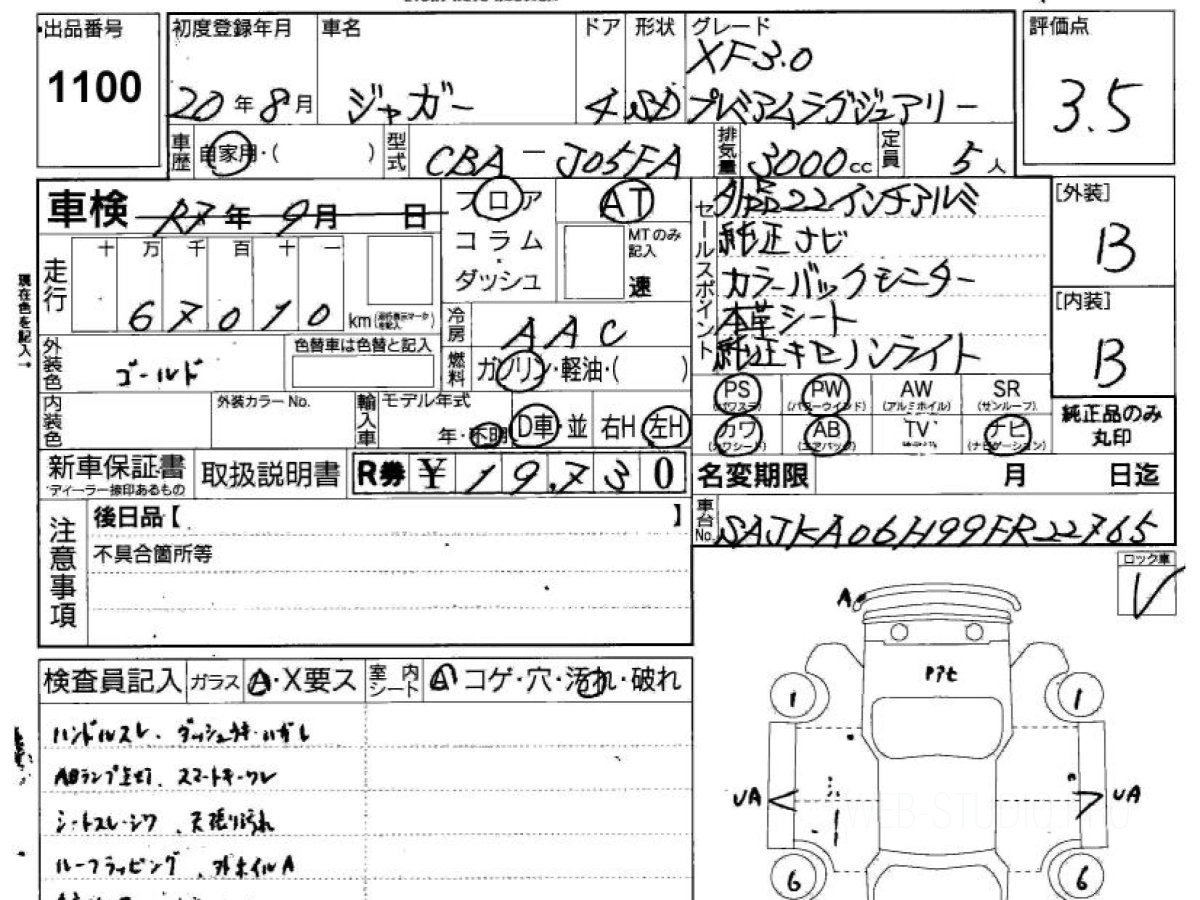 出品番号
1100
初度登録年月
20年8月
車名
ジャガー
ドア
4
形状
SD
グレード
XF3.0
プレミアムラグジュアリー
評価点
3.5
車歴
自家用・( )
型式
CBA-J05FA
排気量
3000cc
定員
5人
車検 R7年9月 日
フロア
コラム
ダッシュ
AT
MTのみ記入
速
セールスポイント
外品22インチアルミ
純正ナビ
カラーバックモニター
本革シート
純正キセノンライト
[外装]
B
[内装]
B
現在色を記入→
走行
十 万 千 百 十 一
6 7 0 1 0
km
冷房
AAC
燃料
ガソリン・軽油・( )
外装色
ゴールド
色替車は色替と記入
内装色
外装カラーNo.
輸入車
モデル年式
年・不明
D車・並
右H 左H
PS
(パワステ)
PW
(パワーウインド)
AW
(アルミホイル)
SR
(サンルーフ)
カワ
(カワシート)
AB
(エアバッグ)
TV
ナビ
(ナビゲーション)
純正品のみ
丸印
新車保証書
ディーラー捺印あるもの
取扱説明書
R券 ¥ 19,730
名変期限 月 日迄
車台No.
SAJKA06H99FR22765
注意事項
後日品【 】
不具合箇所等
ロック車
検査員記入
ガラス
A・X要ス
室内シート
A コゲ・穴・汚れ・破れ
ハンドルスレ、ダッシュウキ・ハガレ
ABランプ点灯、スマートキーワレ
シートスレ・シワ、天張り汚れ
ルーフラッピング、外ホイルA
A
1
1
UA
UA
6
6
WEB-STUDIO.PRO